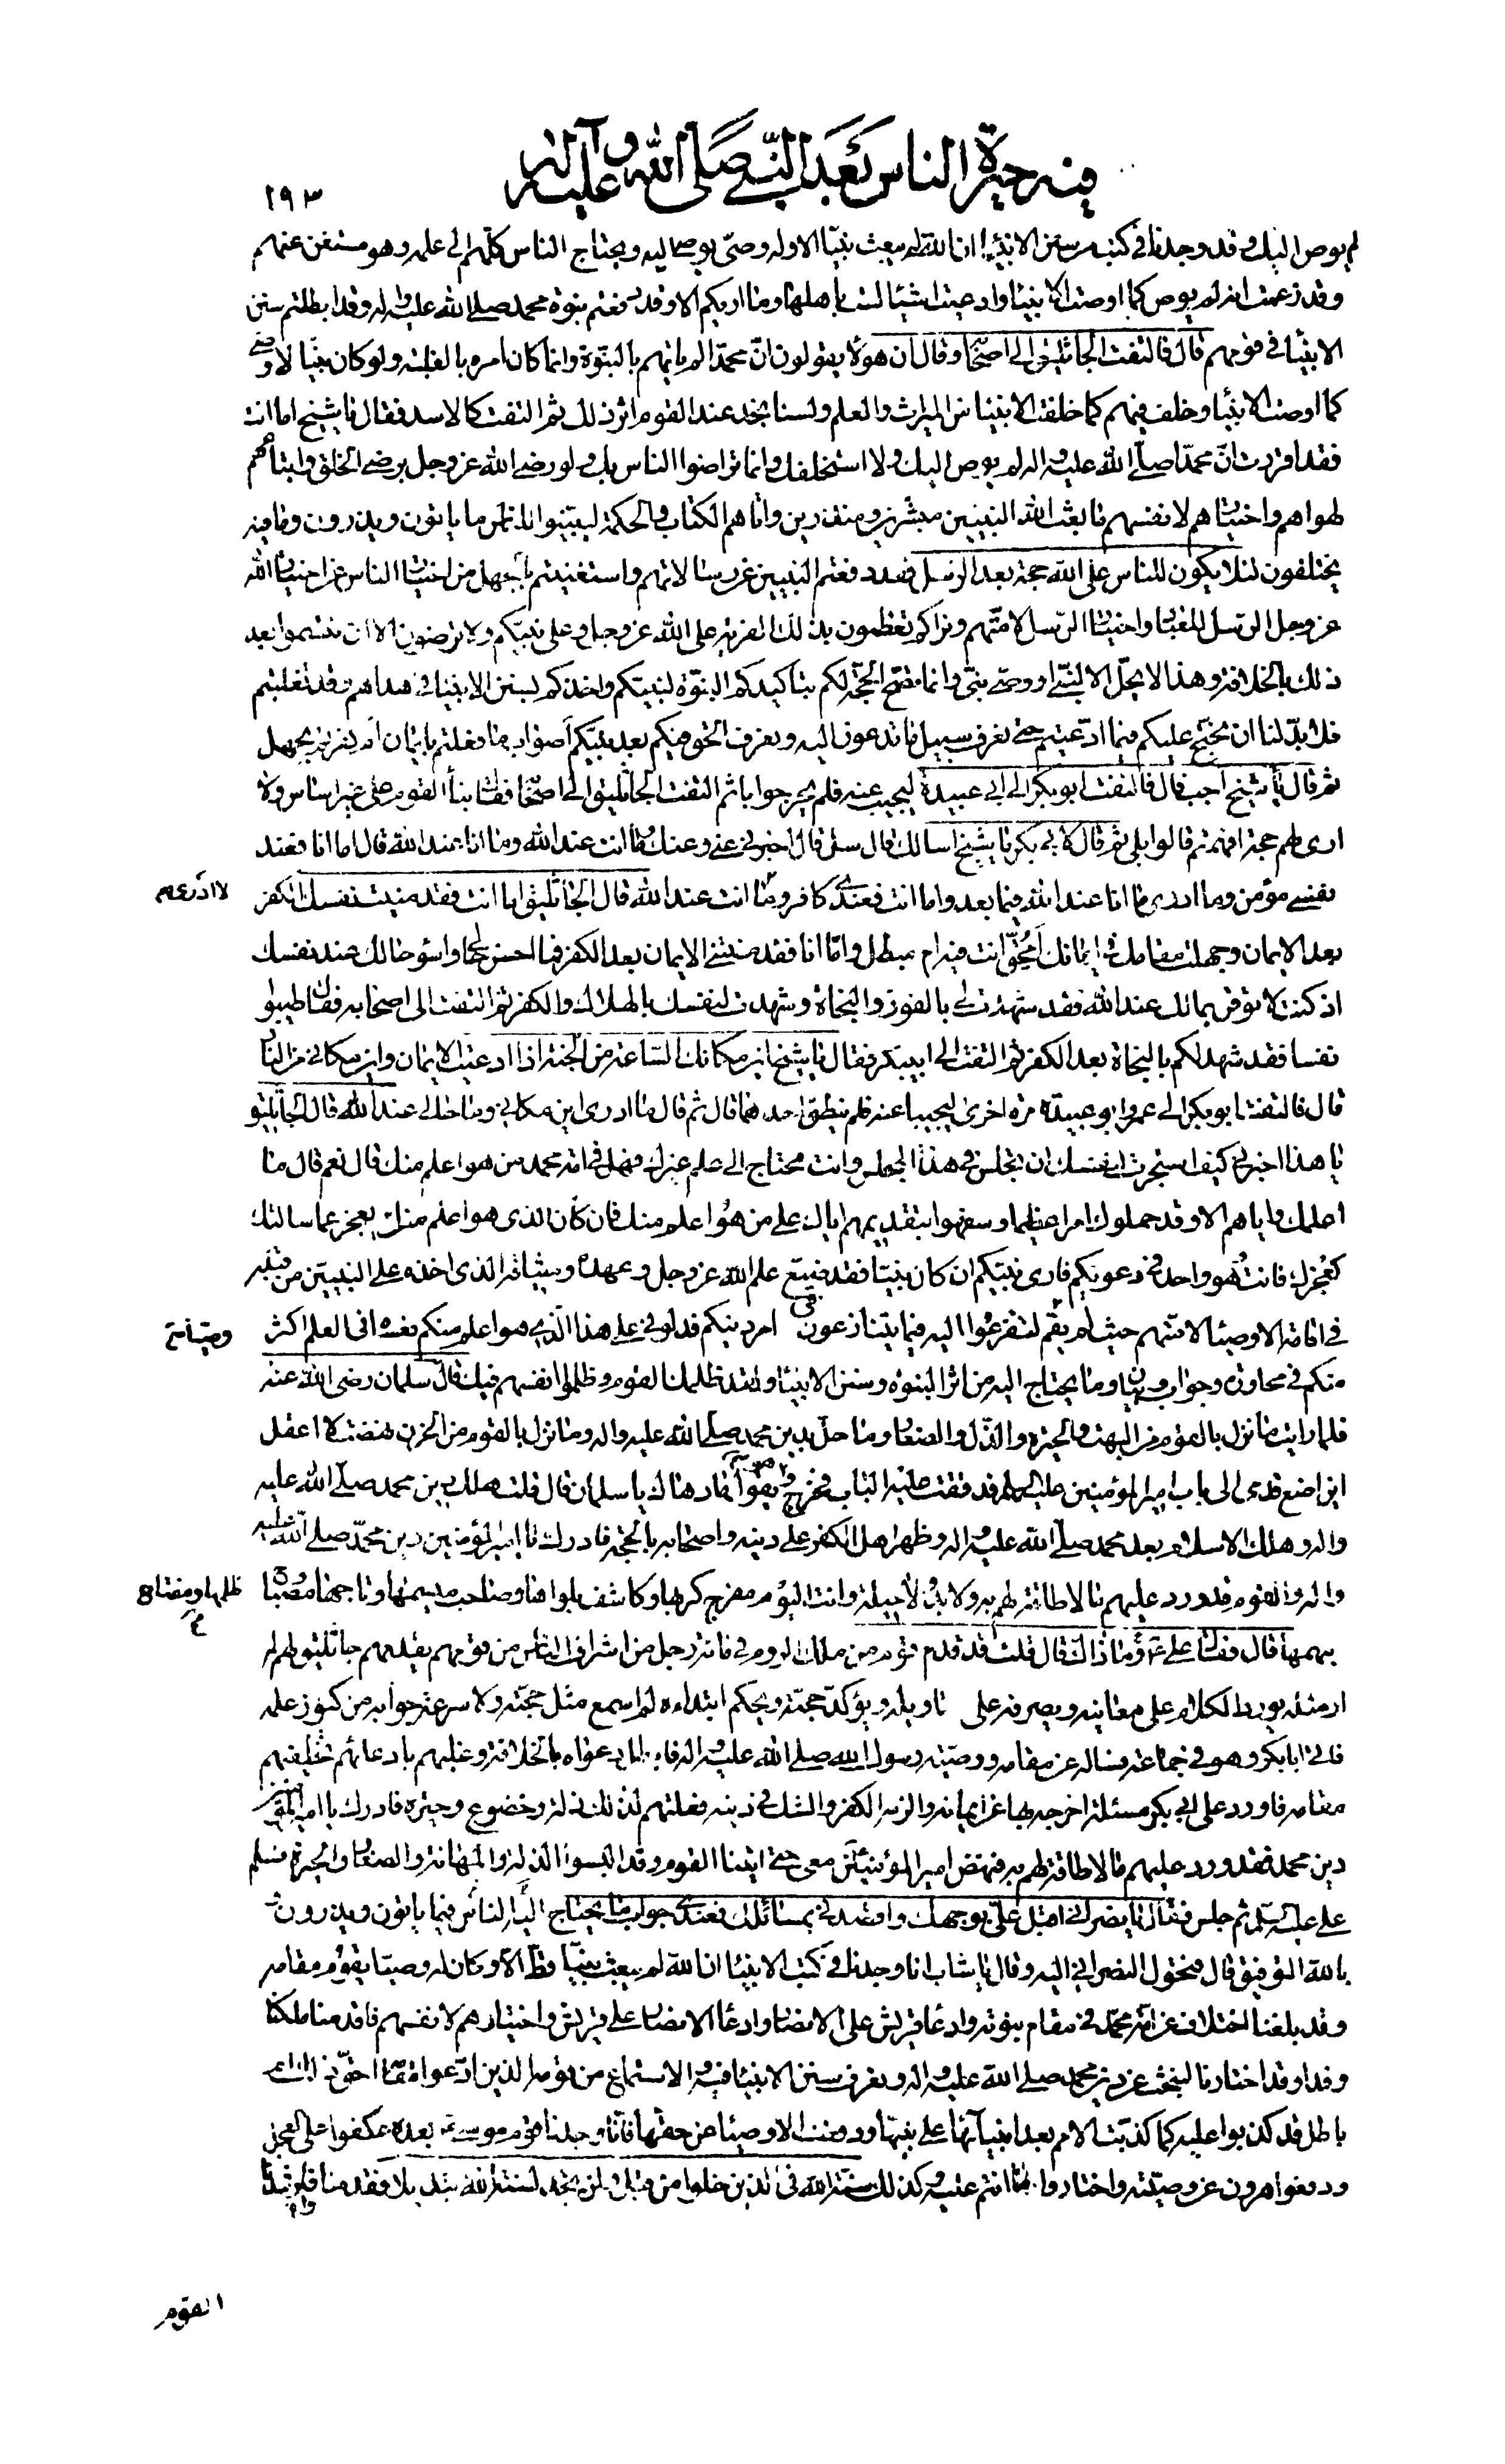 فيه حيرة الناس بعد النبي صلى الله عليه وآله
١٩٣
لم يوص اليك وقد وجدنا في كتب من سنن الانبياء ان الله لم يبعث نبيا الا وله وصي يوصي اليه ويحتاج الناس كلهم الى علمه وهو مستغن عنهم
وقد زعمت انه لم يوص كما اوصت الانبياء وادعيت اشياء لست باهلها وما اريكم الا وقد دفعتم نبوة محمد صلى الله عليه واله وقد ابطلتم سنن
الانبياء في قومهم قال فالتفت الجاثليق الى اصحابه وقال ان هؤلاء يقولون ان محمدا لم ياتهم بالنبوة وانما كان امره بالغلبة ولو كان نبيا لاوصى
كما اوصت الانبياء وخلف فيهم كما خلفت الانبياء من الميراث والعلم ولسنا نجد عند القوم اثر ذلك ثم التفت كالاسد فقال يا شيخ اما انت
فقد اقررت ان محمدا صلى الله عليه واله لم يوص اليك ولا استخلفك وانما تراضوا الناس بك ولو رضي الله عز وجل برضى الخلق واتباعهم
لهواهم واختيارهم لانفسهم ما بعث الله النبيين مبشرين ومنذرين واتاهم الكتاب والحكمة ليبينوا للناس ما ياتون ويذرون وما فيه
يختلفون لئلا يكون للناس على الله حجة بعد الرسل فقد دفعتم النبيين عن رسالاتهم واستغنيتم بالجهل من اختيار الناس عن اختيار الله
عز وجل الرسل للعباد واختيار الرسل لامتهم ونراكم تعظمون بذلك الفرية على الله عز وجل وعلى نبيكم ولا ترضون الا ان تتسموا بعد
ذلك بالخلافة وهذا لا يحل الا لنبي او وصي نبي وانما تصح الحجة لكم بتاكيدكم النبوة لنبيكم واخذكم بسنن الانبياء في هداهم وقد تغلبتم
فلا بد لنا ان نحتج عليكم فيما ادعيتم حتى نعرف سبيل ما تدعون اليه ونعرف الحق فيكم بعد نبيكم اصواب ما فعلتم بايمان ام كفرتم بجهل
ثم قال يا شيخ اجب قال فالتفت ابو بكر الى ابي عبيدة ليجيب عنه فلم يحر جوابا ثم التفت الجاثليق الى اصحابه فقال بناء القوم على غير اساس ولا
ارى لهم حجة افهمتم قالوا بلى ثم قال لابي بكر يا شيخ اسالك قال سل قال اخبرني عني وعنك ما انت عند الله وما انا عند الله قال اما انا فعند
نفسي مؤمن وما ادري ما انا عند الله فيما بعد واما انت فعندي كافر وما انت عند الله قال الجاثليق اما انت فقد منيت نفسك الكفر
لا ادري
بعد الايمان وجهلت مقامك في ايمانك امحق انت فيه ام مبطل واما انا فقد منيتني الايمان بعد الكفر فما احسن حالي واسوء حالك عند نفسك
اذ كنت لا توقن بمالك عند الله فقد شهدت لي بالفوز والنجاة وشهدت لنفسك بالهلاك والكفر ثم التفت الى اصحابه فقال طيبوا
نفسا فقد شهد لكم بالنجاة بعد الكفر ثم التفت الى ابي بكر فقال يا شيخ اين مكانك الساعة من الجنة اذا ادعيت الايمان واين مكاني من النار
قال فالتفت ابو بكر الى عمر وابو عبيدة مرة اخرى ليجيبا عنه فلم ينطق احدهما قال ثم قال ما ادري اين مكاني وما حالي عند الله قال الجاثليق
يا هذا اخبرني كيف استجزت لنفسك ان تجلس في هذا المجلس وانت محتاج الى علم غيرك فهل في امة محمد من هو اعلم منك قال نعم قال ما
اعلمك واياهم الا وقد حملوك امرا عظيما وسفهوا بتقديمهم اياك على من هو اعلم منك فان كان الذي هو اعلم منك يعجز عما سالتك
كعجزك فانت وهو واحد في دعويكم فارى نبيكم ان كان نبيا فقد ضيع علم الله عز وجل وعهده وميثاقه الذي اخذه على النبيين من قبله
في اقامة الاوصياء لامتهم حيث لم يقم لتفزعوا اليه فيما يتنازعون في امر دينكم فدلوني على هذا الذي هو اعلم منكم فعساه في العلم اكثر
منكم في محاورة وجواب وبيان وما يحتاج اليه من اثر النبوة وسنن الانبياء ولقد ظلمك القوم وظلموا انفسهم فيك قال سلمان رضي الله عنه
فلما رايت ما نزل بالقوم من البهت والحيرة والذل والصغار وما حل بدين محمد صلى الله عليه واله وما نزل بالقوم من الحزن نهضت لا اعقل
اين اضع قدمي الى باب امير المؤمنين عليه السلم فدققت عليه الباب فخرج وهو يقول ما دهاك يا سلمان قال قلت هلك دين محمد صلى الله عليه
واله وهلك الاسلام بعد محمد صلى الله عليه واله وظهر اهل الكفر على دينه واصحابه بالحجة فادرك يا امير المؤمنين دين محمد صلى الله عليه
واله والقوم قد ورد عليهم ما لا طاقة لهم به ولا بد ولا حيلة وانت اليوم مفرج كربها وكاشف بلواها وصاحب ميسمها وتاجها ومصباح
ظلمها ومفتاح
بهمها قال فقال علي ع وما ذاك قال قلت قد قدم قوم من ملك الروم في مائة رجل من اشراف الناس من قومهم يقدمهم جاثليق لهم لم
ار مثله يورد الكلام على معانيه ويصرفه على تاويله ويؤكد حجته ويحكم ابتداءه لم اسمع مثل حجته ولا سرعة جوابه من كنوز علمه
فاتى ابا بكر وهو في جماعة فساله عن مقامه ووصية رسول الله صلى الله عليه واله فابطل دعواه بالخلافة وغلبهم بادعائهم تخليفهم
مقامه فاورد على ابي بكر مسئلة اخرجه بها عن ايمانه والزمه الكفر والشك في دينه فعلتهم لذلك ذلة وخضوع وحيرة فادرك يا امير المؤمنين
دين محمد فقد ورد عليهم ما لا طاقة لهم به فنهض امير المؤمنين معي حتى اتينا القوم وقد البسوا الذلة والمهانة والصغار والحيرة فسلم
علي عليه السلم ثم جلس فقال يا نصراني اقبل علي بوجهك واقصدني بمسائلك فعندي جواب ما يحتاج اليه الناس فيما ياتون ويذرون
بالله التوفيق قال فتحول النصراني اليه وقال يا شاب انا وجدنا في كتب الانبياء ان الله لم يبعث نبيا قط الا وكان له وصيا يقوم مقامه
وقد بلغنا اختلاف عن امة محمد في مقام نبوته وادعاء قريش على الانصار وادعاء الانصار على قريش واختيارهم لانفسهم فاقدمنا ملكنا
وفدا وقد اختارنا لنبحث عن دين محمد صلى الله عليه واله ونعرف سنن الانبياء فيه والاستماع من قومه الذين ادعوا مقامه احق ذلك ام
باطل قد كذبوا عليه كما كذبت الامم بعد انبيائها على نبيها ودفعت الاوصياء عن حقها فانا وجدنا قوم موسى بعده عكفوا على العجل
ودفعوا هرون عن وصيته واختاروا ما انتم عليه وكذلك سنة الله في الذين خلوا من قبل ولن تجد لسنة الله تبديلا فقدمنا فارشدنا
القوم